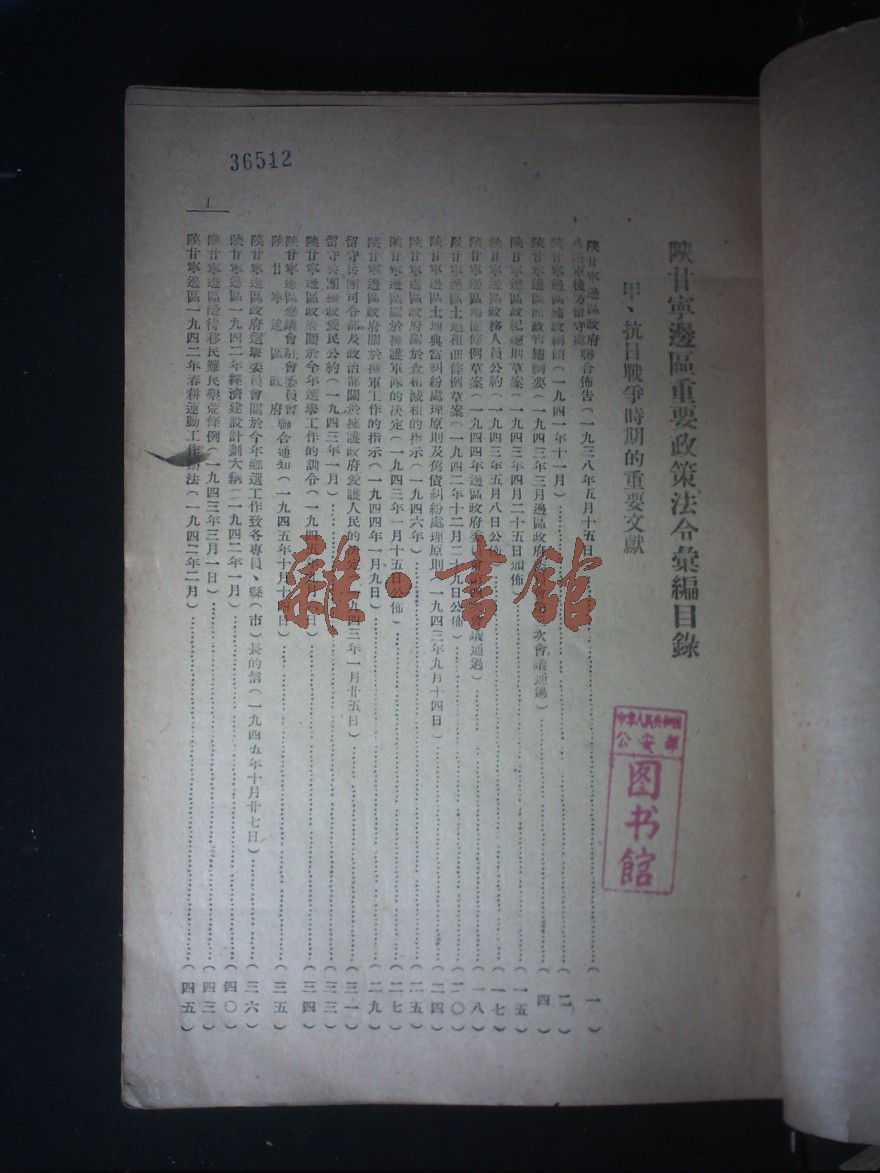 陝甘寧邊區重要政策法令彙編目錄
甲、抗日戰爭時期的重要文獻
陝甘寧邊區政府
八路軍後方留守處
聯合佈告(一九三八年五月十五日
(一)
陝甘寧邊區施政綱領(一九四一年十一月)
(二)
陝甘寧邊區簡政實施綱要(一九四三年三月邊區政府 次會議通過)
(四)
陝甘寧邊區政紀總則草案(一九四三年四月二十五日頒佈)
(一五)
陝甘寧邊區政務人員公約(一九四三年五月八日公佈
(一七)
陝甘寧邊區地權條例草案(一九四四年邊區政府委員會 四 會議通過)
(一八)
陝甘寧邊區土地租佃條例草案(一九四二年十二月二十九日公佈)
(二〇)
陝甘寧邊區土地典當糾紛處理原則及舊債糾紛處理原則(一九四三年九月十四日)
(二四)
陝甘寧邊區政府關於查租減租的指示(一九四六年)
(二五)
陝甘寧邊區關於擁護軍隊的決定(一九四三年一月十五日公佈
(二七)
陝甘寧邊區政府關於擁軍工作的指示(一九四四年一月九日)
(二九)
留守兵團司令部及政治部關於擁護政府愛護人民的決定(一九四三年一月廿五日)
(三一)
留守兵團擁政愛民公約(一九四三年一月)
(三三)
陝甘寧邊區政府關於今年選舉工作的訓令(一九四五年九月 日)
(三四)
陝甘寧邊區參議會駐會委員會
陝甘寧邊區政府
聯合通知(一九四五年十月十四日)
(三五)
陝甘寧邊區政府選舉委員會關於今年鄉選工作致各專員、縣(市)長的信(一九四五年十月廿七日)
(三六)
陝甘寧邊區一九四二年經濟建設計劃大綱(一九四二年一月)
(四〇)
陝甘寧邊區優待移民難民墾荒條例(一九四三年三月一日)
(四三)
陝甘寧邊區一九四二年春耕運動工作辦法(一九四二年二月)
(四五)
1
36512
中華人民共和國
公安部
图书館
雜·書館